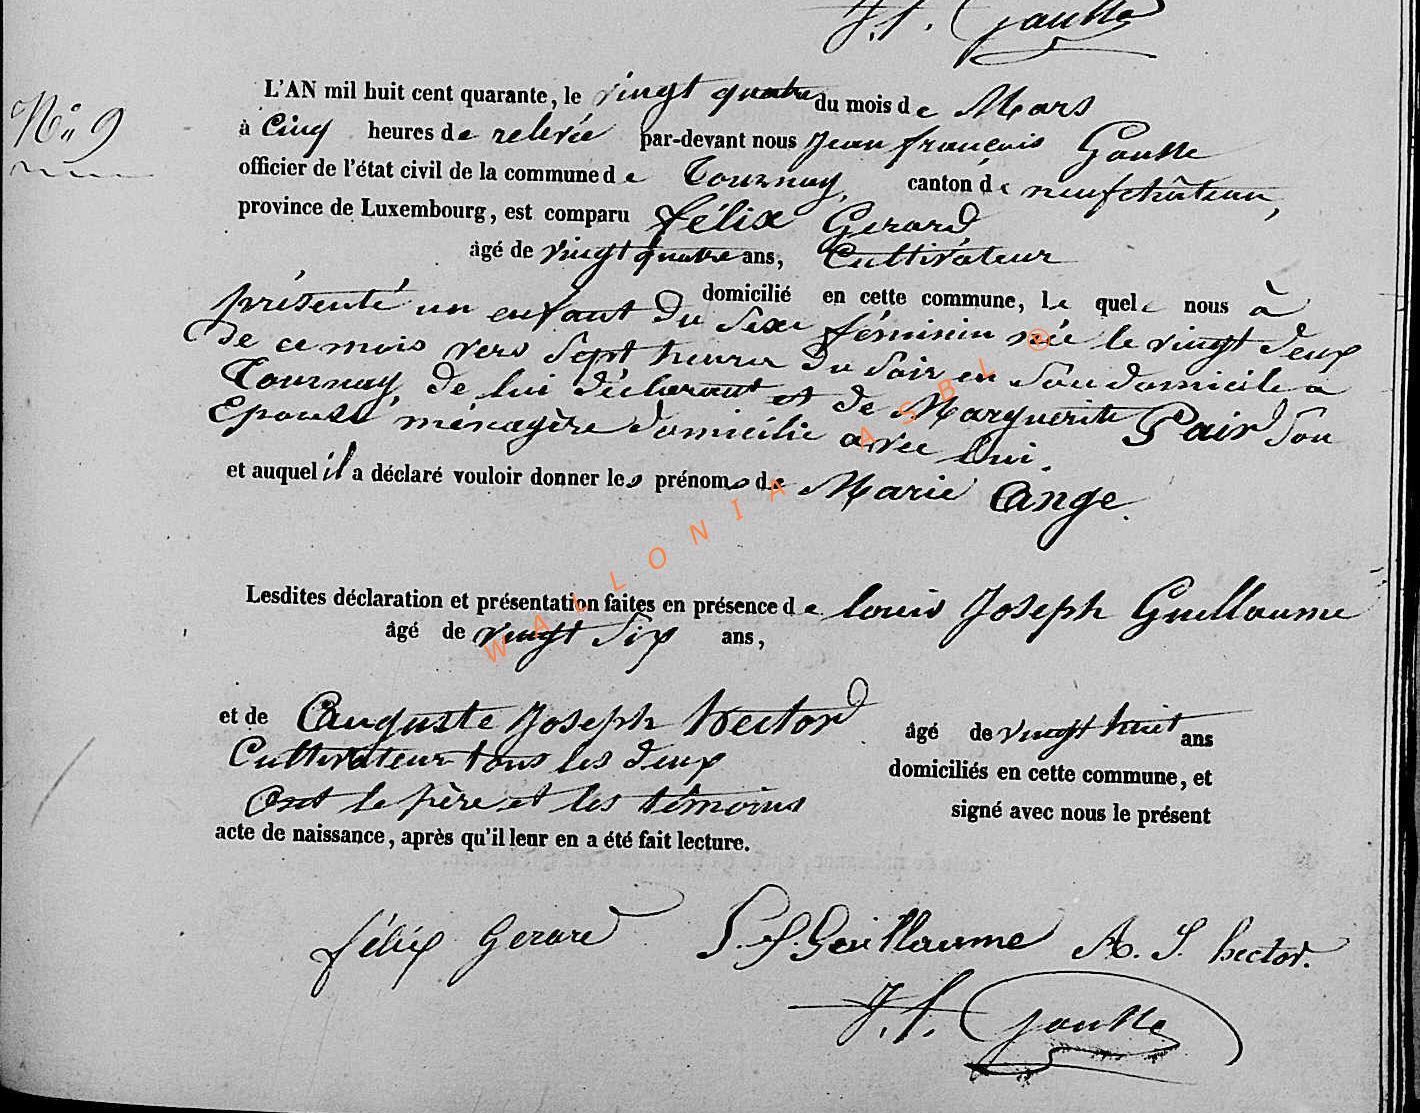 J. f. Gousse
N° 9
L'AN mil huit cent quarante, le vingt quatre du mois de Mars
à Cinq heures de relevée par-devant nous Jean françois Gousse
officier de l'état civil de la commune de Tournay, canton de neufchâteau,
province de Luxembourg, est comparu félix Gerard
âgé de vingt quatre ans, Cultivateur
domicilié en cette commune, le quel nous à
présenté un enfant du Sexe féminin née le vingt deux
de ce mois vers Sept heures du Soir en Son domicile a
Tournay, de lui déclarant et de Marguerite Pair Son
Epouse, ménagère domicilié avec lui.
et auquel il a déclaré vouloir donner les prénoms de Marie Ange.
Lesdites déclaration et présentation faites en présence de louis Joseph Guillaume
âgé de vingt Six ans,
et de Auguste Joseph Hector âgé de vingt huit ans
Cultivateur tous les deux domiciliés en cette commune, et
Ont le père et les témoins signé avec nous le présent
acte de naissance, après qu'il leur en a été fait lecture.
félix Gerard L. J. Guillaume A. J. hector.
J. f. Gousse
WALLONIA ASBL ®